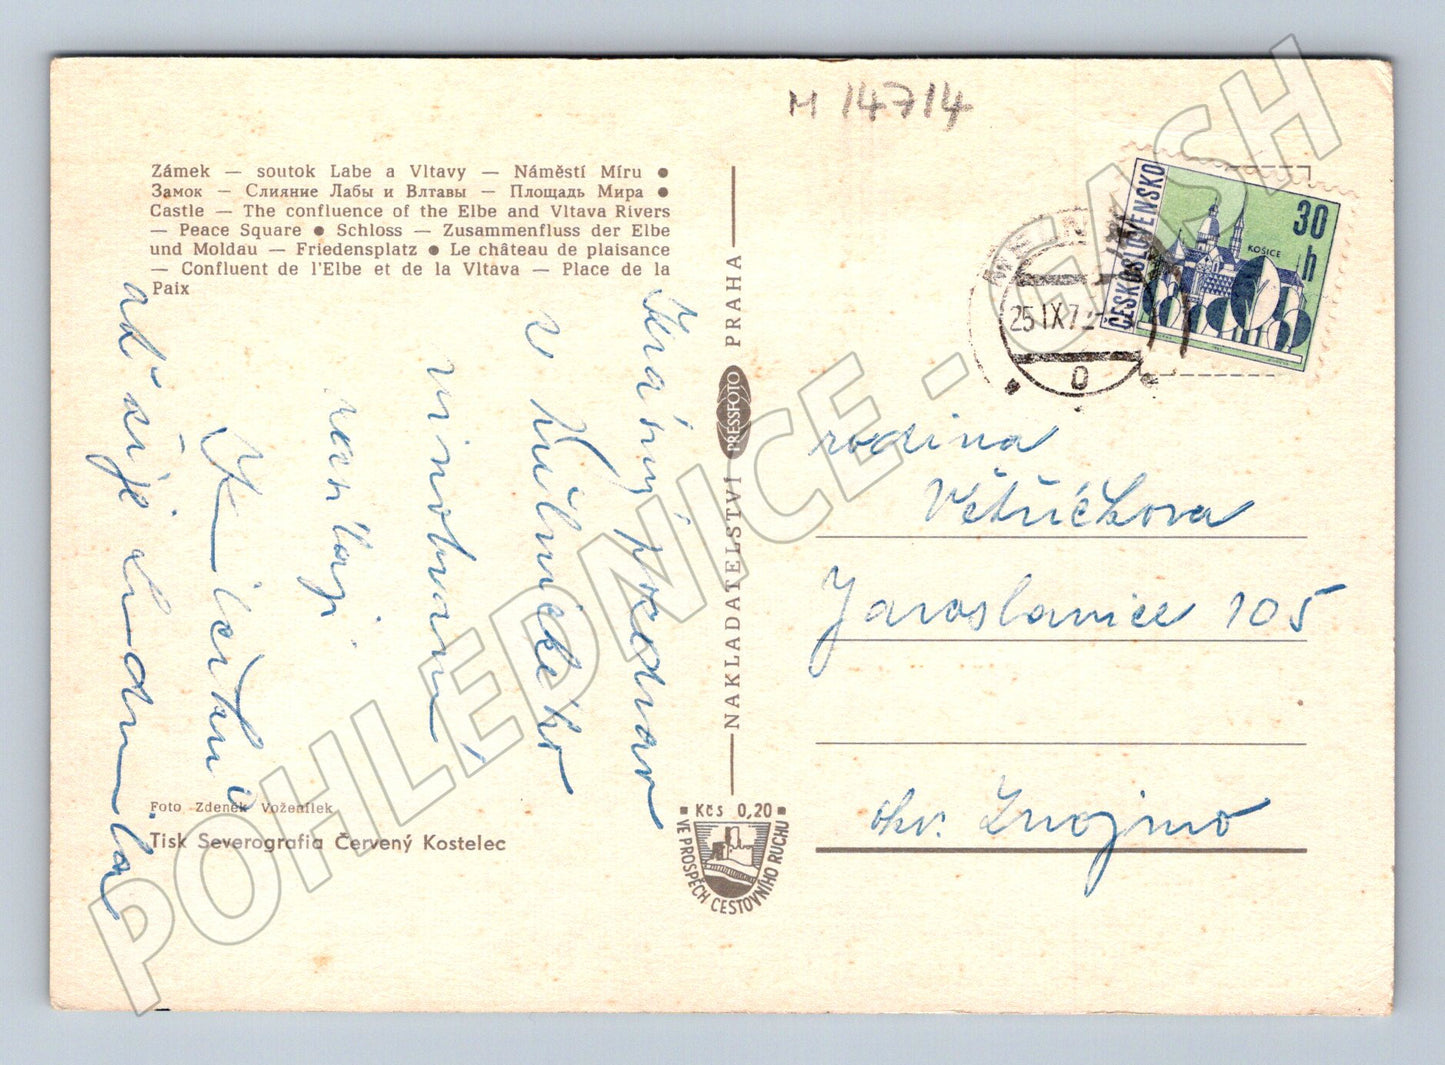 M 14714
Zámek — soutok Labe a Vltavy — Náměstí Míru ●
Замок — Слияние Лабы и Влтавы — Площадь Мира ●
Castle — The confluence of the Elbe and Vltava Rivers
— Peace Square ● Schloss — Zusammenfluss der Elbe
und Moldau — Friedensplatz ● Le château de plaisance
— Confluent de l'Elbe et de la Vltava — Place de la
Paix
Krásný pozdrav
z
vinobraní
Foto Zdeněk Voženílek
Tisk Severografia Červený Kostelec
NAKLADATELSTVÍ PRESSFOTO PRAHA
Kčs 0,20
VE PROSPĚCH CESTOVNÍHO RUCHU
ČESKOSLOVENSKO
30
h
KOŠICE
25.IX.72
rodina
Větříčkova
Jaroslavice 105
okr. Znojmo
POHLEDNICE - CASH